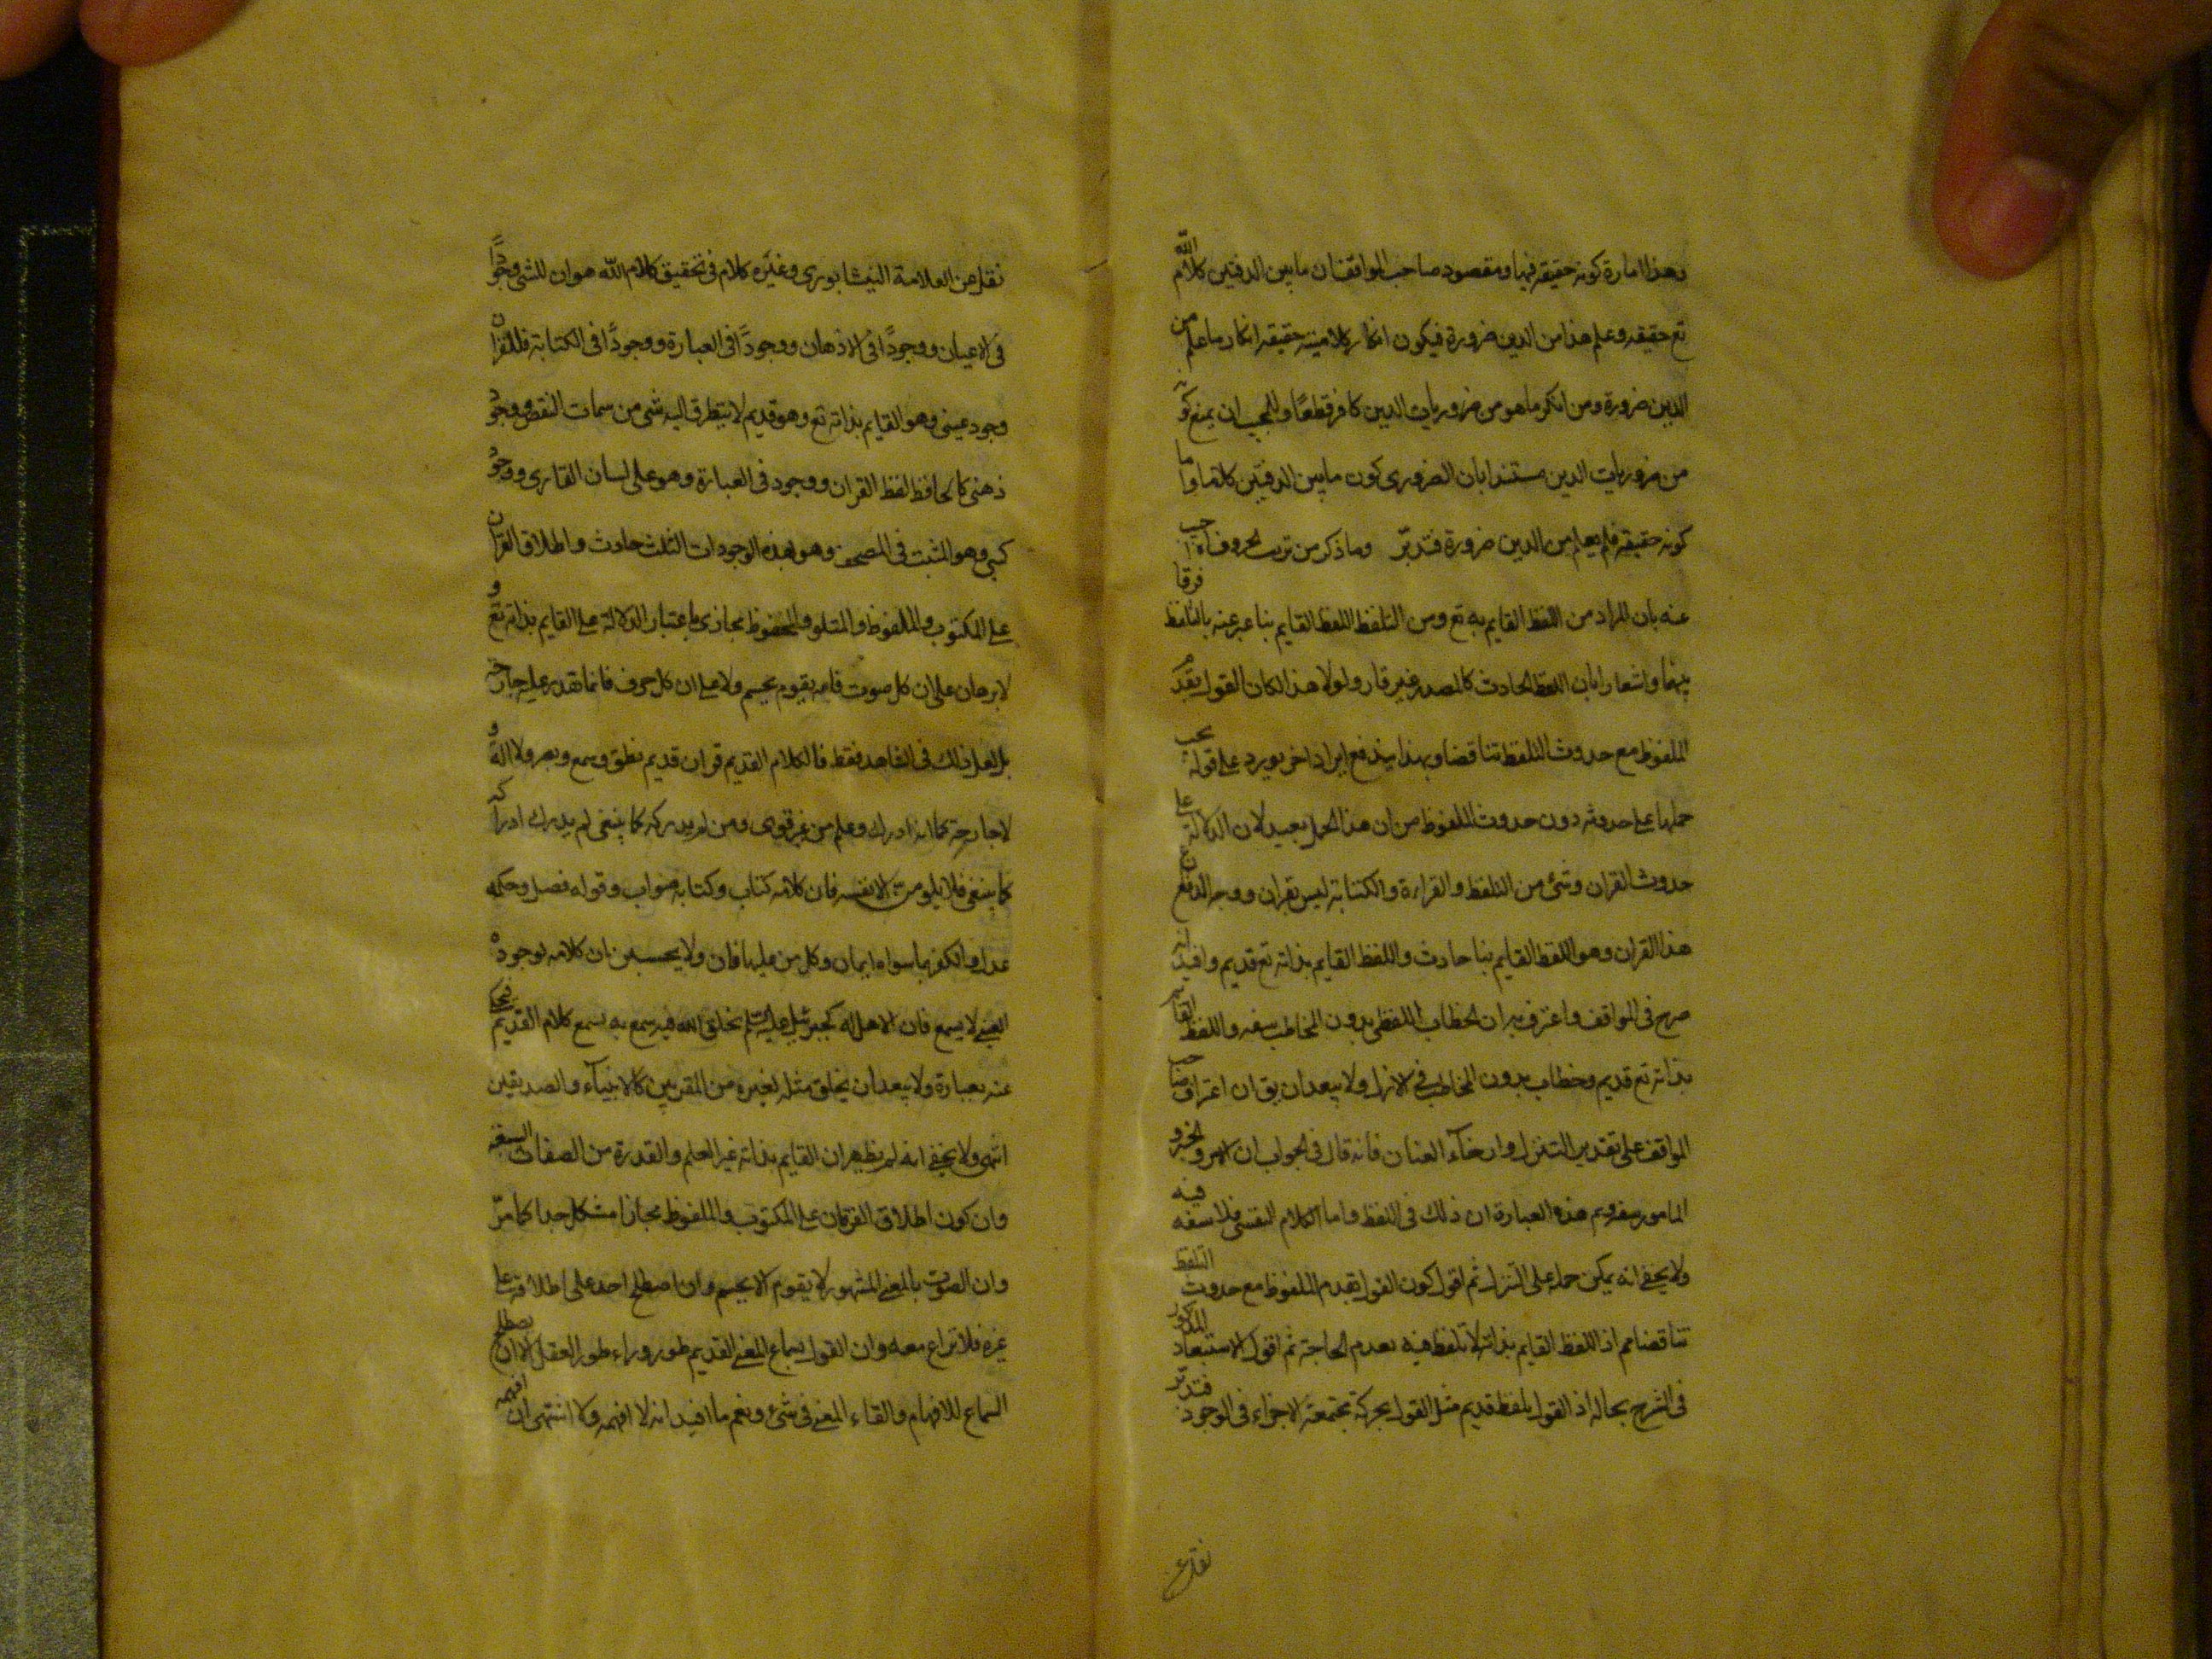 وهذا امارة كونه حقيقة فيها ومقصود صاحب المواقف ان ما بين الدفتين كلام الله
تع حقيقة وعلم هذا من الدين ضرورة فيكون انكار كلاميته حقيقة انكار ما علم من
الدين ضرورة ومن انكر ما هو من ضروريات الدين كافر قطعًا والمجيب ان يمنع كونه
من ضروريات الدين مستندا بان الضروري كون ما بين الدفتين كلاما واما
كونه حقيقة فلم يعلم من الدين ضرورة فتدبّر وما ذكر من ترتب الحروف اجيب
عنه بان المراد من اللفظ القايم به تع ومن التلفظ اللفظ القايم بنا عبر عنه بالتلفظ فرقا
بينهما واشعارا بان اللفظ الحادث كالمصدر غير قار ولولا هذا لكان القول بقدم
الملفوظ مع حدوث التلفظ تناقضا وبهذا يندفع ايراد اخر يورد على قوله يجب
حملها على حدوثه دون حدوث الملفوظ من ان هذا الحمل بعيد لان الدلالة على
حدوث القران وشئ من التلفظ والقراءة والكتابة ليس بقران ووجه الدفع ان
هذا القران وهو اللفظ القايم بنا حادث واللفظ القايم بذاته تع قديم وافيد انه
صرح في المواقف واعترف به ان الخطاب اللفظي بدون المخاطب سفه واللفظ القايم
بذاته تع قديم وخطاب بدون المخاطب في الازل ولا يبعد ان يق ان اعتراف صاحب
المواقف على تقدير التنزل وارخاء العنان فانه قال في الجواب ان الامر والخبر و
المامور سفه ويم هذه العبارة ان ذلك في اللفظ واما الكلام النفسي فلا سفه فيه
ولا يخفى انه يمكن حمله على التنزل ثم اقول كون القول بقدم الملفوظ مع حدوث التلفظ
تناقضا مم اذ اللفظ القايم بذاته لا تلفظ فيه بعدم الحاجة ثم اقول الاستبعاد المذكور
في الشرح بحاله اذ القول بلفظ قديم مثل القول بحركة مجتمعة الاجزاء في الوجود فتدبّر
نقل عن العلامة النيشابوري وغيره كلام في تحقيق كلام الله هو ان للشئ وجودًا
في الاعيان ووجودًا في الاذهان ووجودًا في العبارة ووجودًا في الكتابة فللقران
وجود عيني وهو القايم بذاته تع وهو قديم لا يتطرق اليه شئ من سمات النقص ووجود
ذهني كالحافظ لفظ القران ووجود في العبارة وهو على لسان القاري ووجود
كتبي وهو المثبت في المصحف وهو بهذه الوجودات الثلث حادث واطلاق القران
على المكتوب والملفوظ والمتلو والمحفوظ مجازي باعتبار الدلالة على القايم بذاته تع و
لا برهان على ان كل صوت فانه يقوم بجسم ولا على ان كل حرف فانما تقدير على جارحة
بل لعل ذلك في الشاهد فقط فالكلام القديم قران قديم نطق وسمع وبصر ولا الة و
لا جارحة كما انه ادراك وعلم من غير قوى ومن لم يدركه كما ينبغي لم يدرك ادراكه
كما ينبغي فلا يلومن الا نفسه فان كلامه كتاب وكتابه صواب وقوله فصل وحكمه
عدل والكفر بما سواه ايمان وكل من عليها فان ولا يحسبن ان كلامه لوجوده
العيني لا يسمع فان الاهل له كجبرئيل عليه السلم يخلق الله فيه سمع به يسمع كلام القديم فيحكي
عنه بعبارة ولا يبعد ان يخلق مثله لغيره من المقربين كالانبياء والصديقين
انتهى ولا يخفى انه لم يظهر ان القايم بذاته غير العلم والقدرة من الصفات السبعة
وان كون اطلاق القران على المكتوب والملفوظ مجازا مشكل جدا كما مرّ
وان الصوت بالمعنى المشهور لا يقوم الا بجسم وان اصطلح احد على اطلاقه على
غيره فلا نزاع معه وان القول بسماع المعنى القديم طور وراء طور العقل الا ان يصطلح
السماع للافهام والقاء المعنى في شئ ونعم ما افيد انه لا افهمه ولا اشتهي ان افهمه